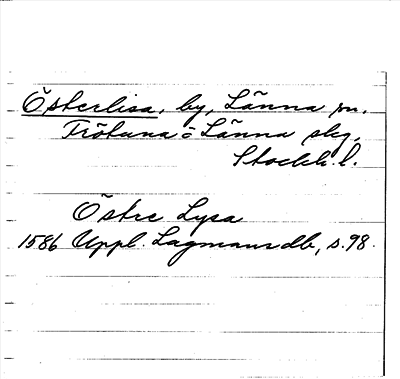 Österlisa, by, Länna sn.
Frötuna o Länna skg,
Stockh. l.
Östre Lysa
1586 Uppl. Lagmansdb, s. 98.